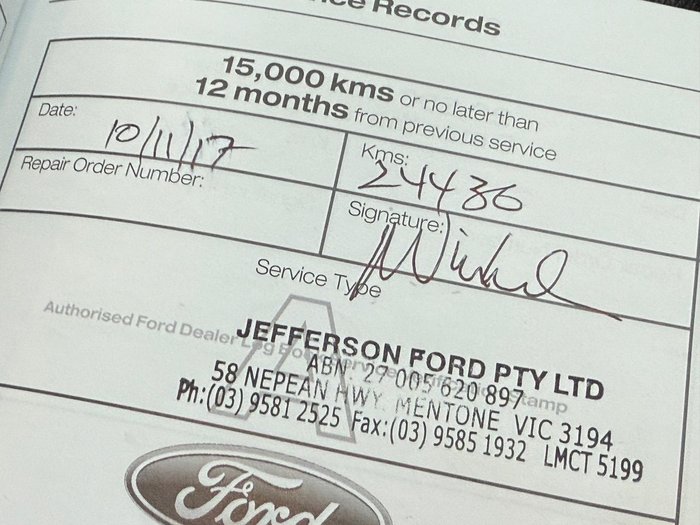 Records
15,000 kms or no later than
12 months from previous service
Date: 10/11/17
Kms: 24436
Repair Order Number:
Signature:
Service Type
A
Authorised Ford Dealer Log Book Service Stamp
JEFFERSON FORD PTY LTD
ABN: 27 005 620 897
58 NEPEAN HWY MENTONE VIC 3194
Ph:(03) 9581 2525 Fax:(03) 9585 1932 LMCT 5199
Ford